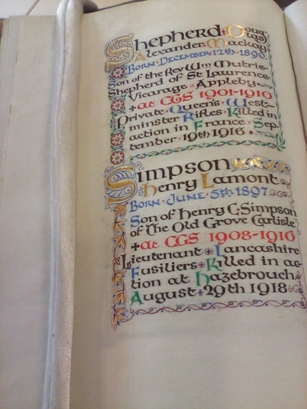 Shepherd · Doug
las
Alexander · Mackay
Born · December 12th 1890 ·
Son of the Revd Wm Mutrie
Shepherd of St Lawrence
Vicarage · Appleby ·
+ at CGS 1901-1910
Private · Queens · West-
minster Rifles · Killed in
action in France · Sep-
tember · 19th 1916 ·
Simpson
Henry Lamont
Born · June · 5th 1897 ·
Son of Henry C. Simpson
of The Old Grove Carlisle
+ at CGS 1908-1916
Lieutenant + Lancashire
Fusiliers + Killed in ac-
tion at Hazebrouck
August + 29th 1918 ·